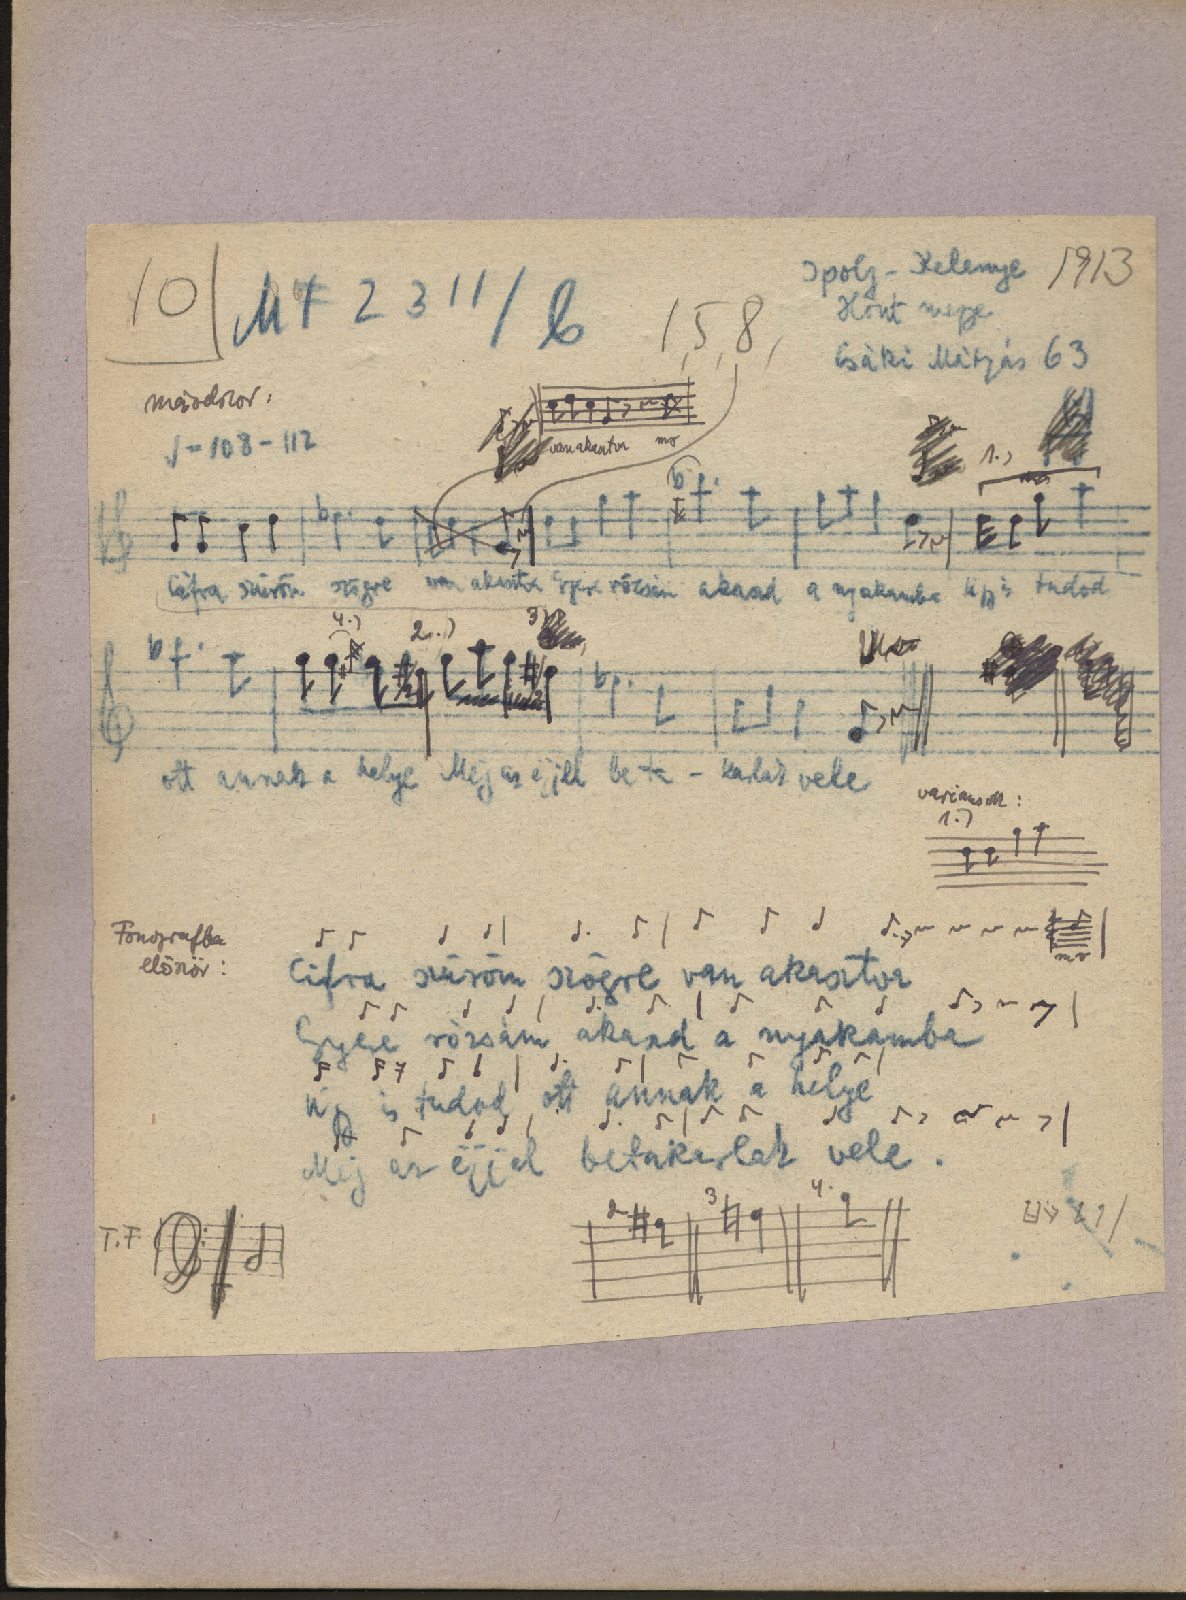 10 MF 2311/b
Ipoly-Kelenye 1913
Hont megye
Csáki Mátyás 63
15,8,
másodszor:
♩=108-112
van akasztva
1.)
Cifra szűröm szögre van akasztva Gyere rózsám akaszd a nyakamba Úgy is tudod
4.) 2.) 3.)
ott annak a helye Még az éjjel beta - karlak vele
variánsok:
1.)
Fonografba
először:
Cifra szűröm szögre van akasztva
Gyere rózsám akaszd a nyakamba
Úgy is tudod ott annak a helye
Még az éjjel betakarlak vele.
T.F
2 3 4.